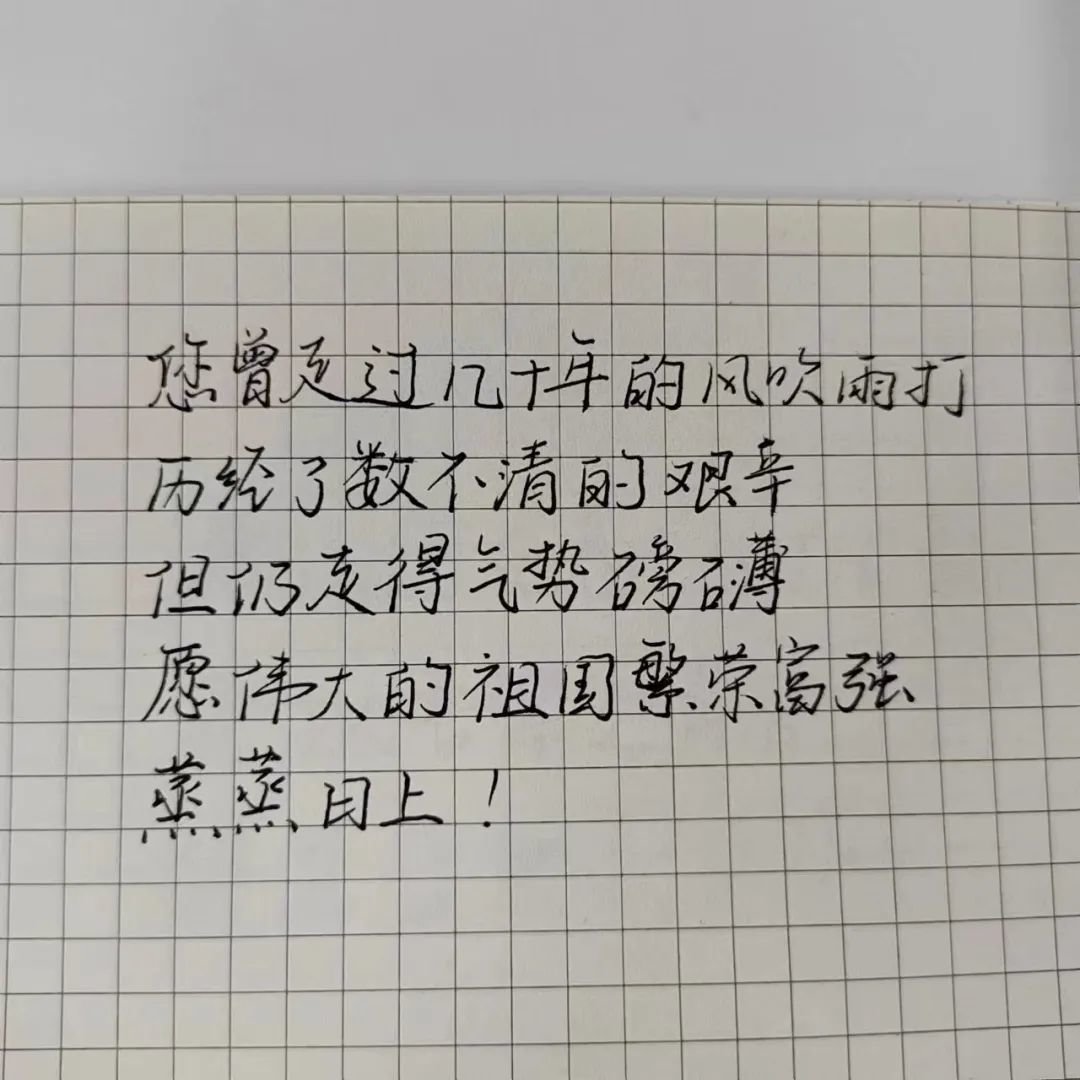 您曾走过几十年的风吹雨打
历经了数不清的艰辛
但仍走得气势磅礴
愿伟大的祖国繁荣富强
蒸蒸日上！